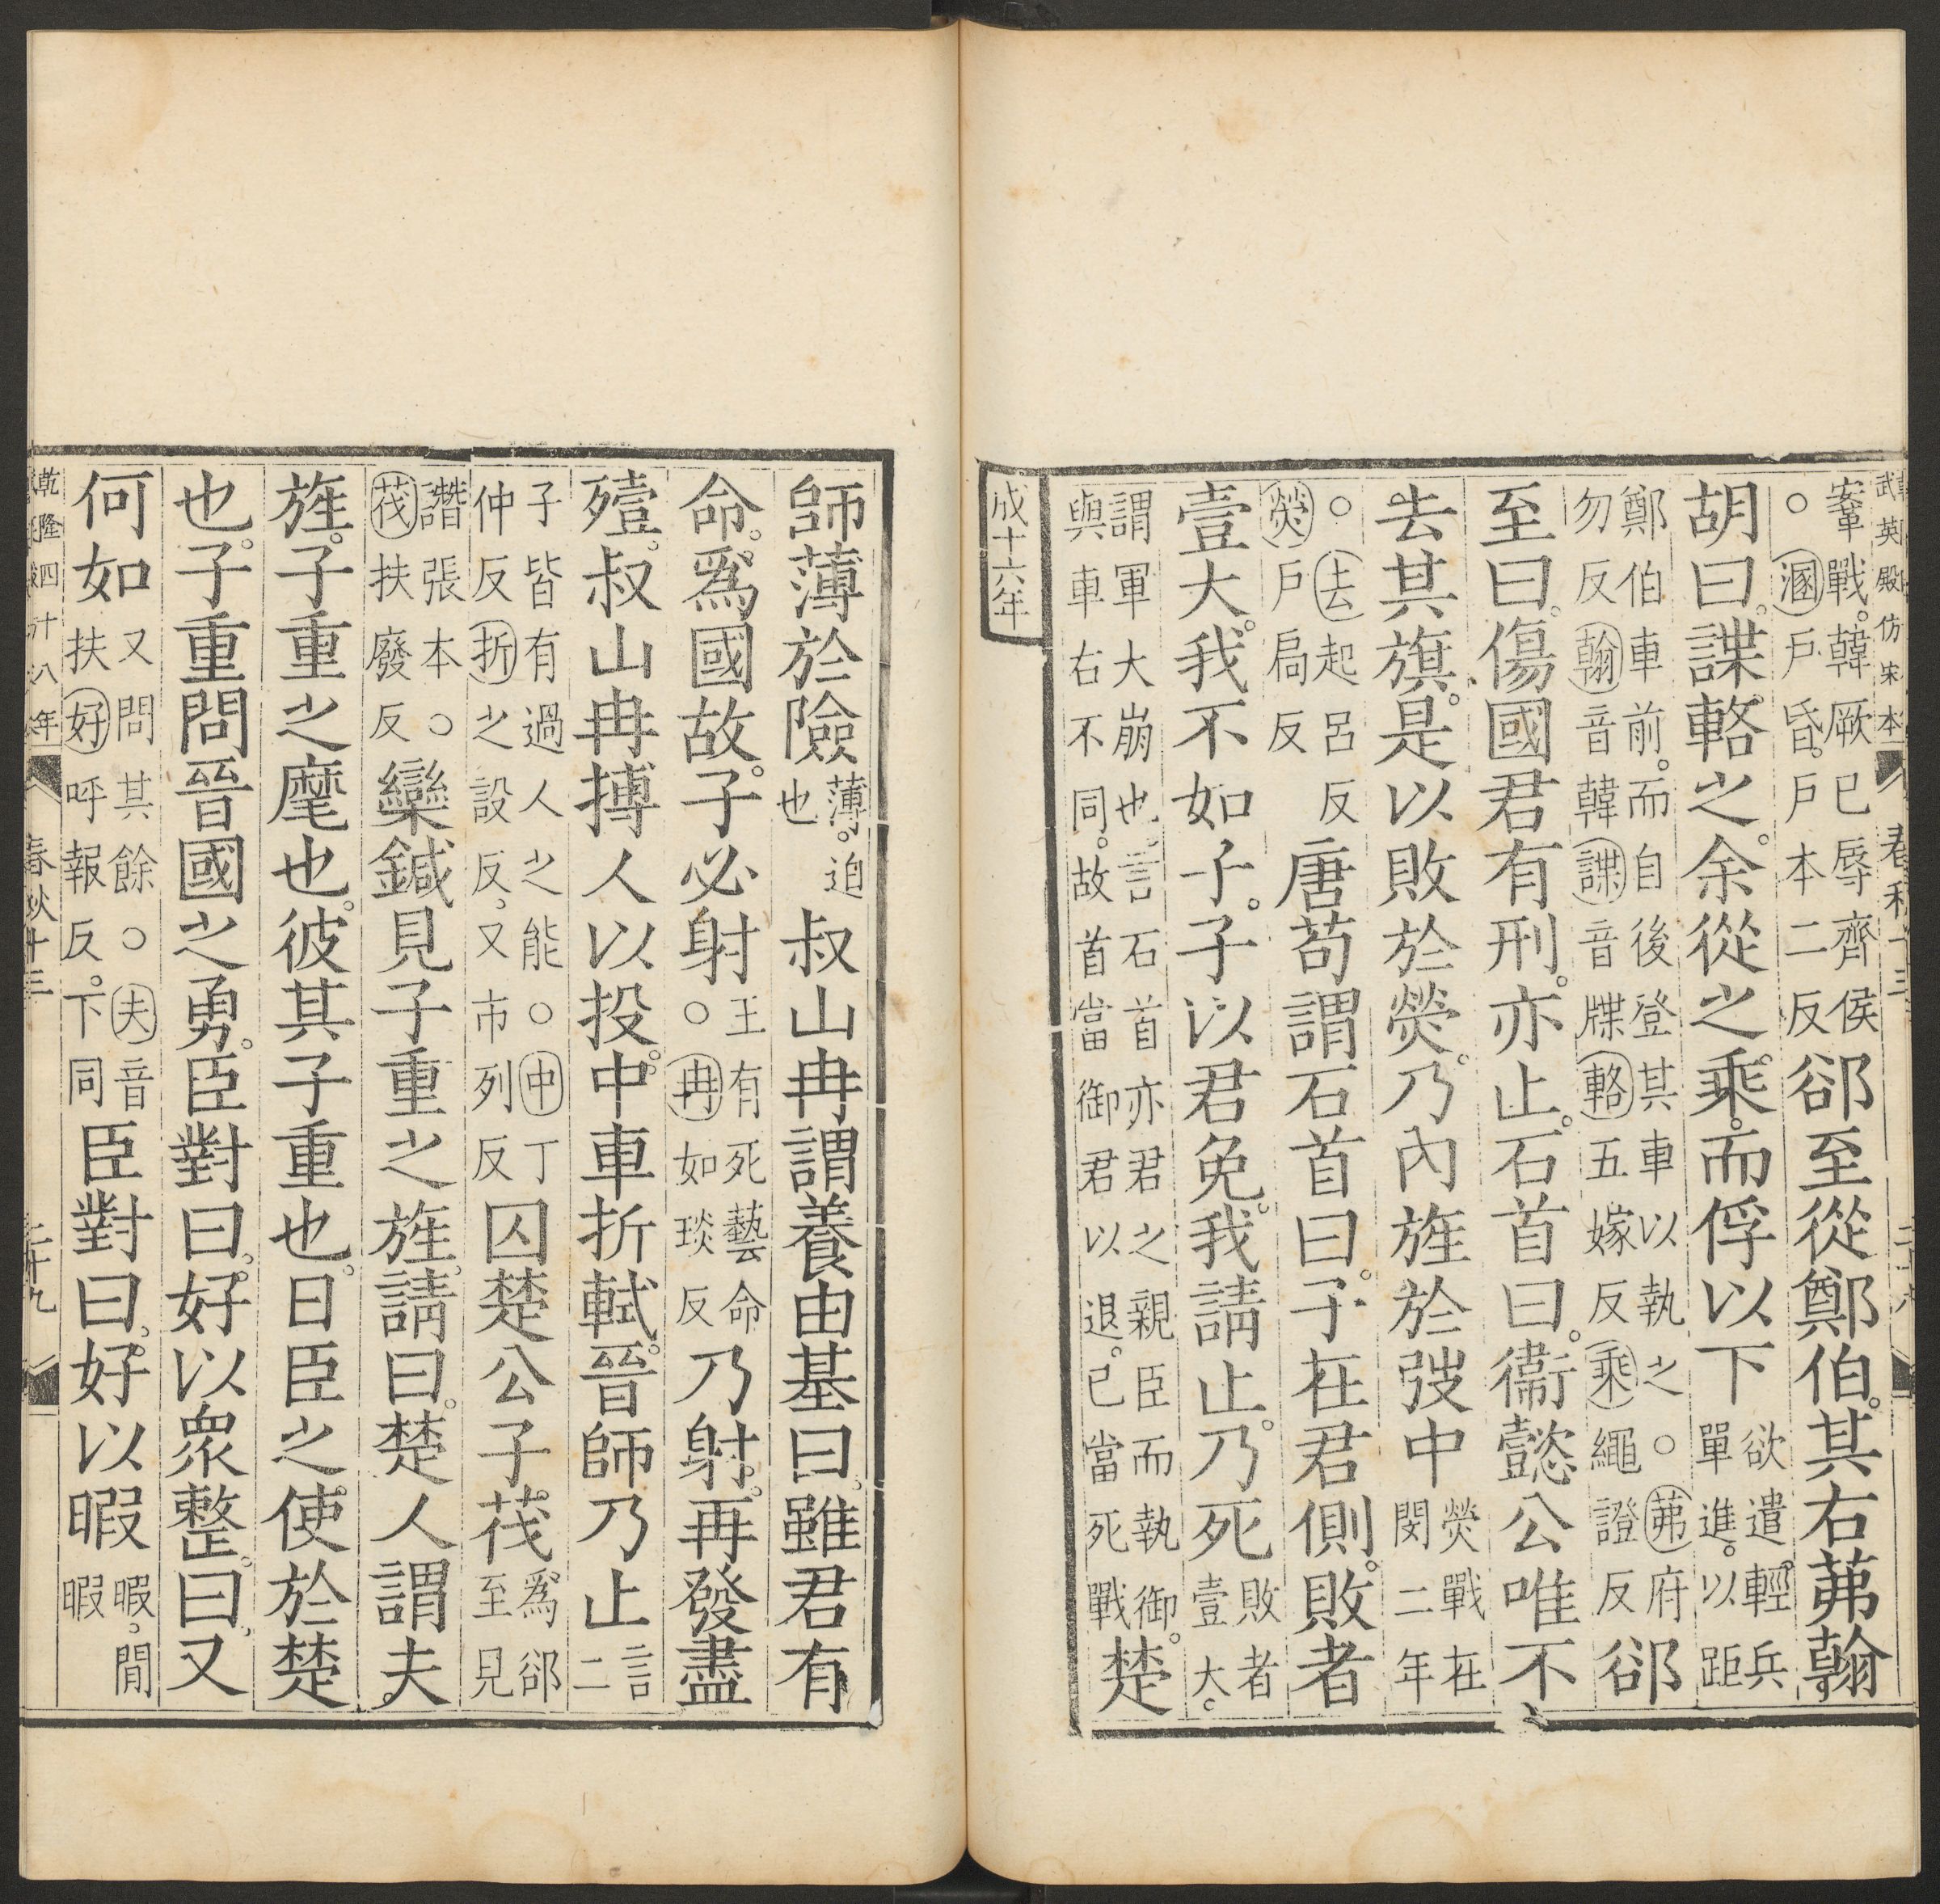 武英殿仿宋本 春秋十三 二十八
鞌戰。韓厥已辱齊侯○溷戶昏。戶本二反郤至從鄭伯。其右茀翰
胡曰。諜輅之。余從之乘。而俘以下欲遣輕兵單進。以距
鄭伯車前。而自後登其車以執之○茀府勿反翰音韓諜音牒輅五嫁反乘繩證反郤
至曰。傷國君有刑。亦止。石首曰。衞懿公唯不
去其旗。是以敗於熒。乃內旌於弢中熒戰在閔二年
○去起呂反熒戶扃反唐苟謂石首曰。子在君側。敗者
壹大。我不如子。子以君免。我請止。乃死敗者壹大。
謂軍大崩也。言石首亦君之親臣而執御。與車右不同。故首當御君以退。己當死戰楚
成十六年
師薄於險薄。迫也叔山冉謂養由基曰。雖君有
命。爲國故。子必射王有死藝命○冉如琰反乃射。再發盡
殪。叔山冉搏人以投。中。車折軾。晉師乃止言二
子皆有過人之能○中丁仲反折之設反、又市列反囚楚公子茷爲郤至見
譖張本○茷扶廢反欒鍼見子重之旌。請曰。楚人謂夫
旌。子重之麾也。彼其子重也。日臣之使於楚
也。子重問晉國之勇。臣對曰。好以衆整。曰。又
何如又問其餘○夫音扶好呼報反。下同臣對曰。好以暇暇、閒暇
乾隆四十八年 春秋十三 二十九